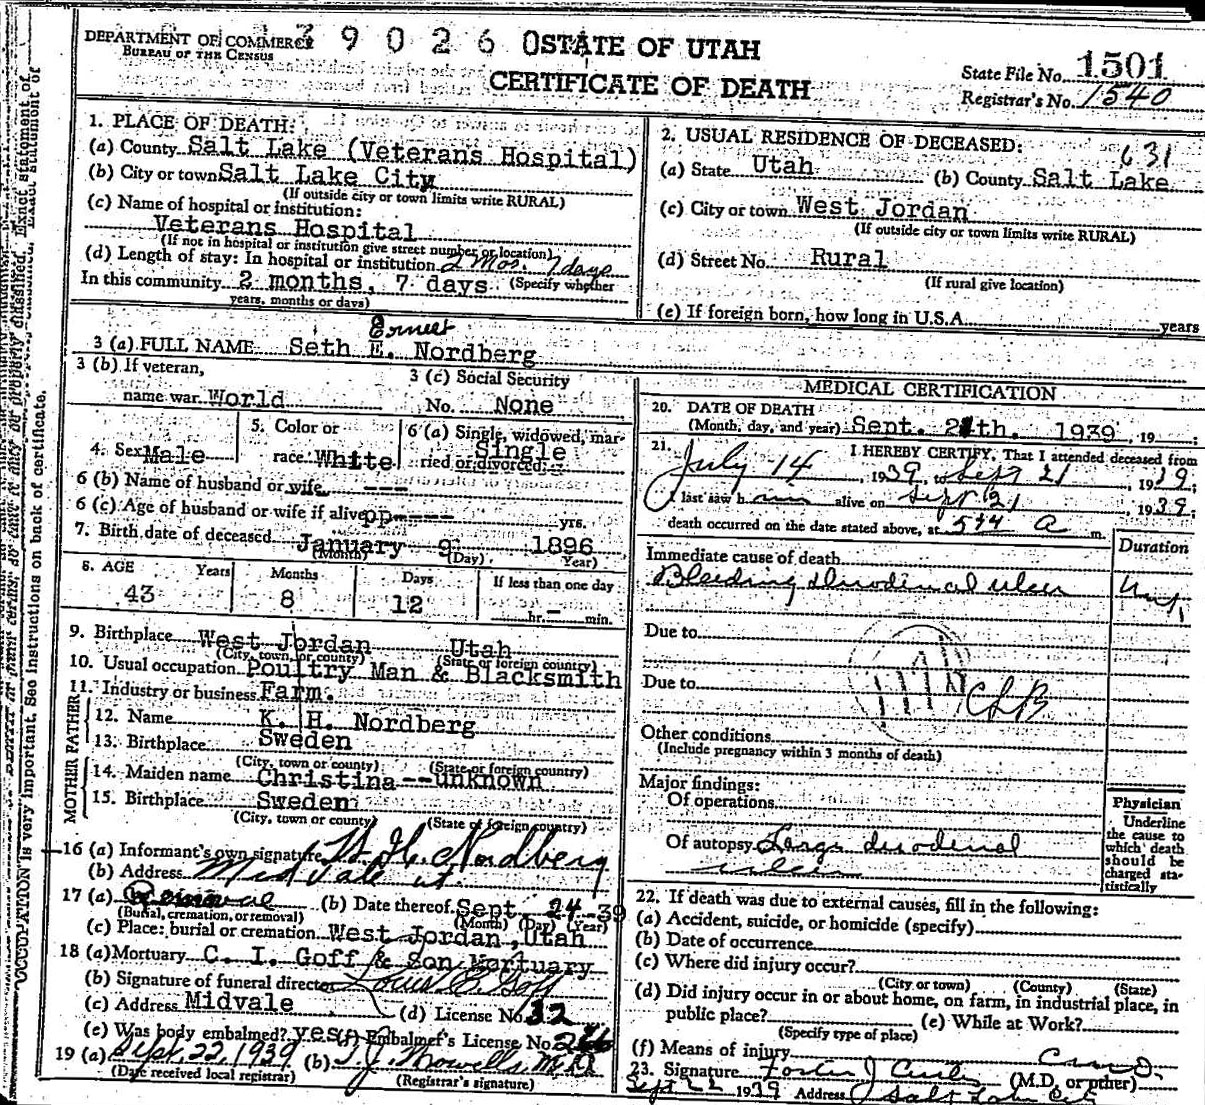 DEPARTMENT OF COMMERCE
BUREAU OF THE CENSUS
3 9 0 2 6 0
STATE OF UTAH
CERTIFICATE OF DEATH
State File No. 1501
Registrar's No. 1540
1. PLACE OF DEATH:
(a) County Salt Lake (Veterans Hospital)
(b) City or town Salt Lake City
(If outside city or town limits write RURAL)
(c) Name of hospital or institution:
Veterans Hospital
(If not in hospital or institution give street number or location)
(d) Length of stay: In hospital or institution 2 Mos. 7 days
In this community 2 months, 7 days (Specify whether
years, months or days)
2. USUAL RESIDENCE OF DECEASED:
631
(a) State Utah (b) County Salt Lake
(c) City or town West Jordan
(If outside city or town limits write RURAL)
(d) Street No. Rural
(If rural give location)
(e) If foreign born, how long in U.S.A. years
Ernest
3 (a) FULL NAME Seth E. Nordberg
3 (b) If veteran,
name war World
3 (c) Social Security
No. None
4. Sex Male
5. Color or
race White
6 (a) Single, widowed, mar-
Single
ried or divorced
6 (b) Name of husband or wife ---
6 (c) Age of husband or wife if alive yrs.
7. Birth date of deceased January 9 1896
(Month) (Day) (Year)
8. AGE Years Months Days If less than one day
43 8 12 hr. - min.
9. Birthplace West Jordan Utah
(City, town, or county) (State or foreign country)
10. Usual occupation Poultry Man & Blacksmith
11. Industry or business Farm.
FATHER
12. Name K. H. Nordberg
13. Birthplace Sweden
(City, town or county) (State or foreign country)
MOTHER
14. Maiden name Christina --unknown
15. Birthplace Sweden
(City, town or county) (State or foreign country)
16 (a) Informant's own signature Nordberg
(b) Address Midvale ut.
17 (a) Removal (b) Date thereof Sept. 24-39
(Burial, cremation, or removal) (Month) (Day) (Year)
(c) Place: burial or cremation West Jordan, Utah
18 (a) Mortuary C. I. Goff & Son Mortuary
(b) Signature of funeral director Goff
(c) Address Midvale (d) License No. 32
(e) Was body embalmed? yes (f) Embalmer's License No.
19 (a) Sept. 22, 1939 (b) T. J. Howells M.D.
(Date received local registrar) (Registrar's signature)
MEDICAL CERTIFICATION
20. DATE OF DEATH
(Month, day, and year) Sept. 21th. 1939, 19 ;
21. I HEREBY CERTIFY, That I attended deceased from
July 14, 1939, to Sept 21, 1939;
I last saw him alive on Sept 21 1939;
death occurred on the date stated above, at 534 a m.
Immediate cause of death Duration
Bleeding duodenal ulcer
Due to
Due to
CLB
Other conditions
(Include pregnancy within 3 months of death)
Major findings:
Of operations
Of autopsy Large duodenal
ulcer
Physician
Underline
the cause to
which death
should be
charged sta-
tistically
22. If death was due to external causes, fill in the following:
(a) Accident, suicide, or homicide (specify)
(b) Date of occurrence
(c) Where did injury occur?
(City or town) (County) (State)
(d) Did injury occur in or about home, on farm, in industrial place, in
public place? (e) While at Work?
(Specify type of place)
(f) Means of injury
23. Signature Foster J Curtis (M.D. or other)
Sept 22 1939 Address Salt Lake City
OCCUPATION is very important. See instructions on back of certificate.